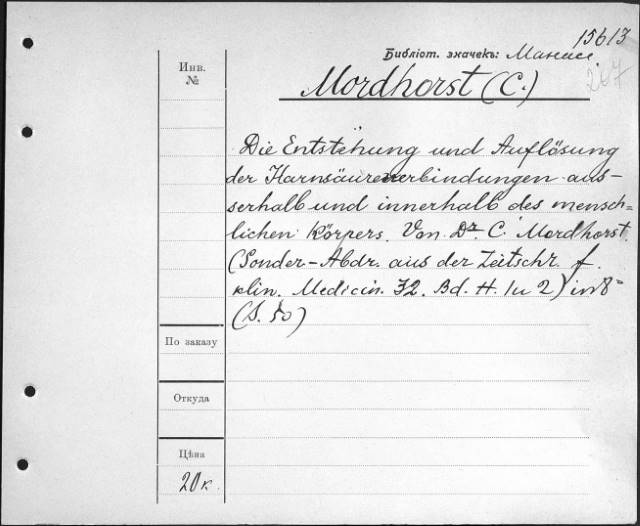 15613
Библіот. значекъ: Манасс.
267
Инв.
№
Mordhorst (C.)
Die Entstehung und Auflösung
der Harnsäureverbindungen aus-
serhalb und innerhalb des mensch=
lichen Körpers. Von Dr. C. Mordhorst.
(Sonder-Abdr. aus der Zeitschr. f.
klin. Medicin. 32. Bd. H. 1 u 2) in 8°
(S. 50)
По заказу
Откуда
Цѣна
20 к.